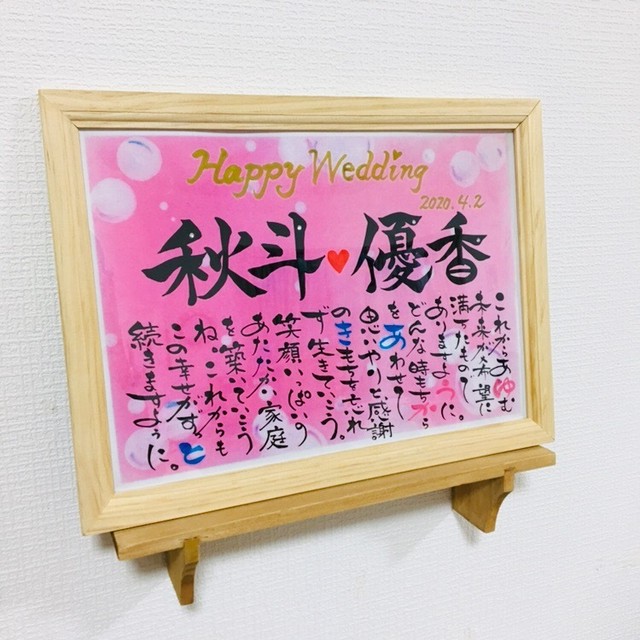 Happy Wedding
2020.4.2
秋斗♥優香
これからあゆむ
未来が希望に
満ちたもので
ありますように。
どんな時もちから
をあわせて
思いやりと感謝
のきもちを忘れ
ず生きていこう。
笑顔いっぱいの
あたたかい家庭
を築いていこう
ね。これからも
この幸せがずっと
続きますように。